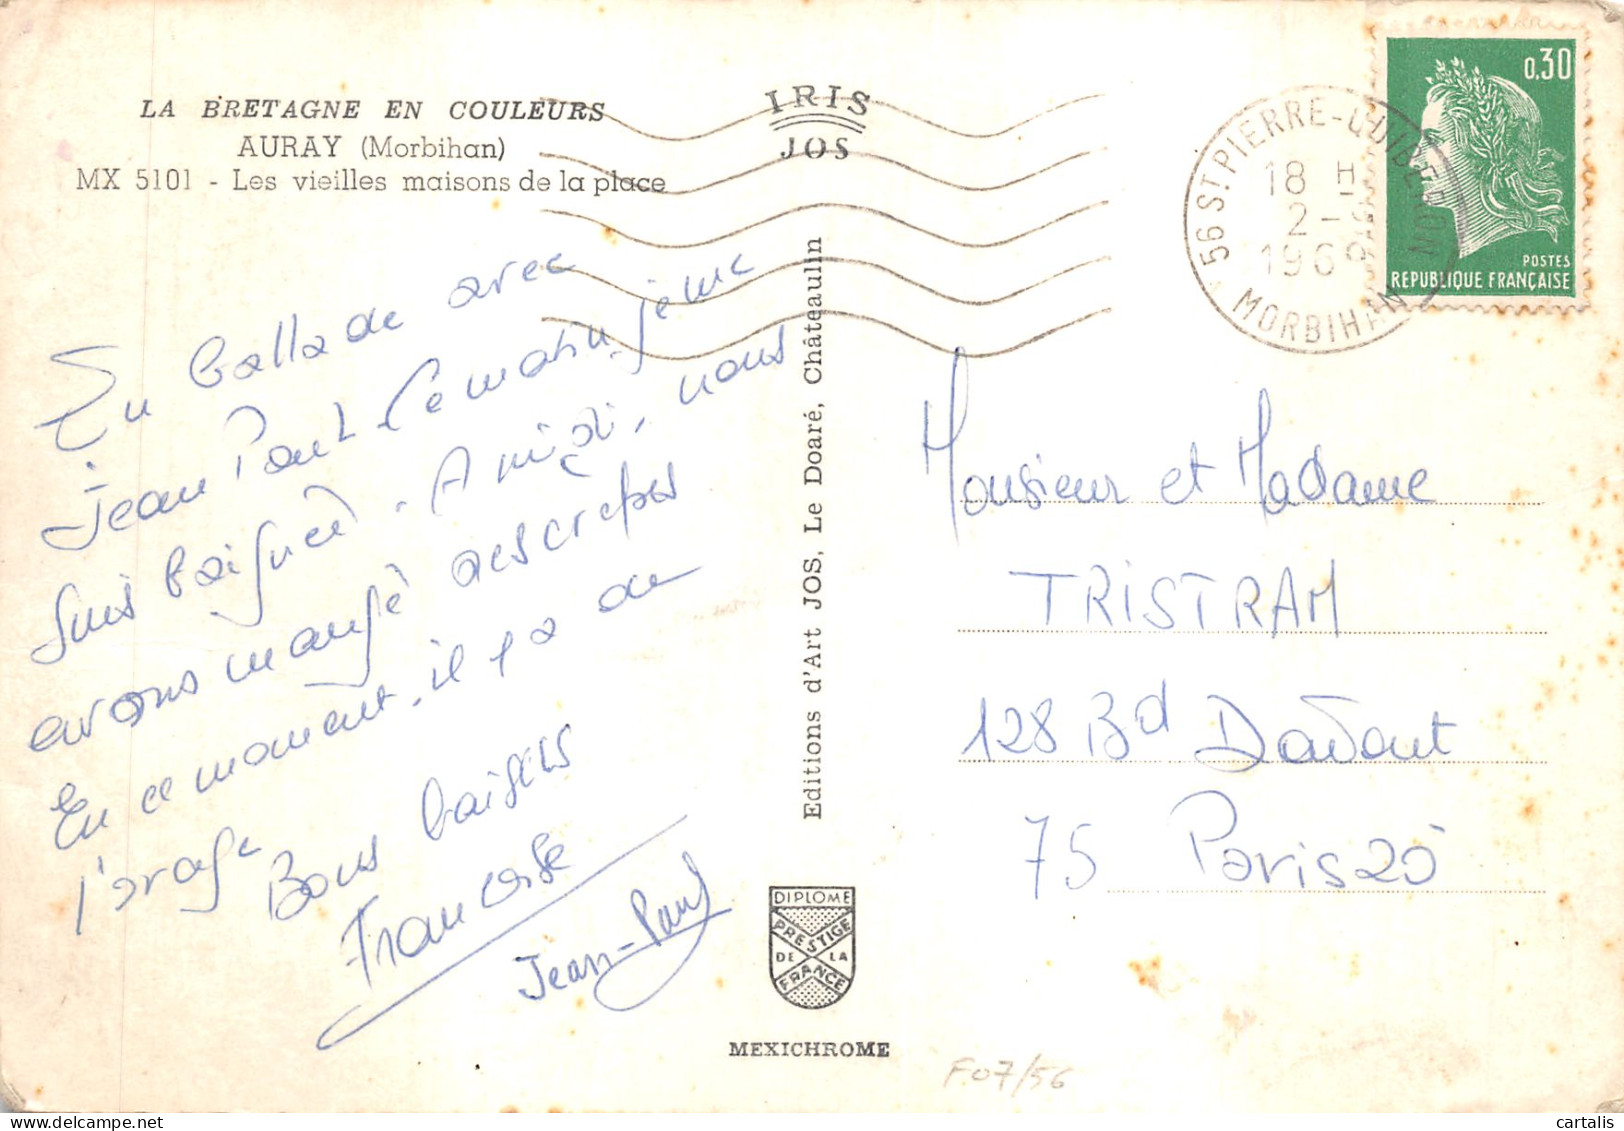 LA BRETAGNE EN COULEURS
AURAY (Morbihan)
MX 5101 - Les vieilles maisons de la place
IRIS
JOS
56 ST PIERRE-QUIBERON
18 H
2 -
1969
MORBIHAN
0,30
POSTES
REPUBLIQUE FRANÇAISE
En ballade avec
Jean Paul. Ce matin, je me
suis baignée. A midi, nous
avons mangé des crêpes
En ce moment, il y a de
l'orage
Bons baisers
Françoise
Jean-Paul
Editions d'Art JOS, Le Doaré, Châteaulin
Monsieur et Madame
TRISTRAM
128 Bd Davout
75 Paris 20
DIPLOME
PRESTIGE
DE LA
FRANCE
MEXICHROME
F.07/56
cartalis